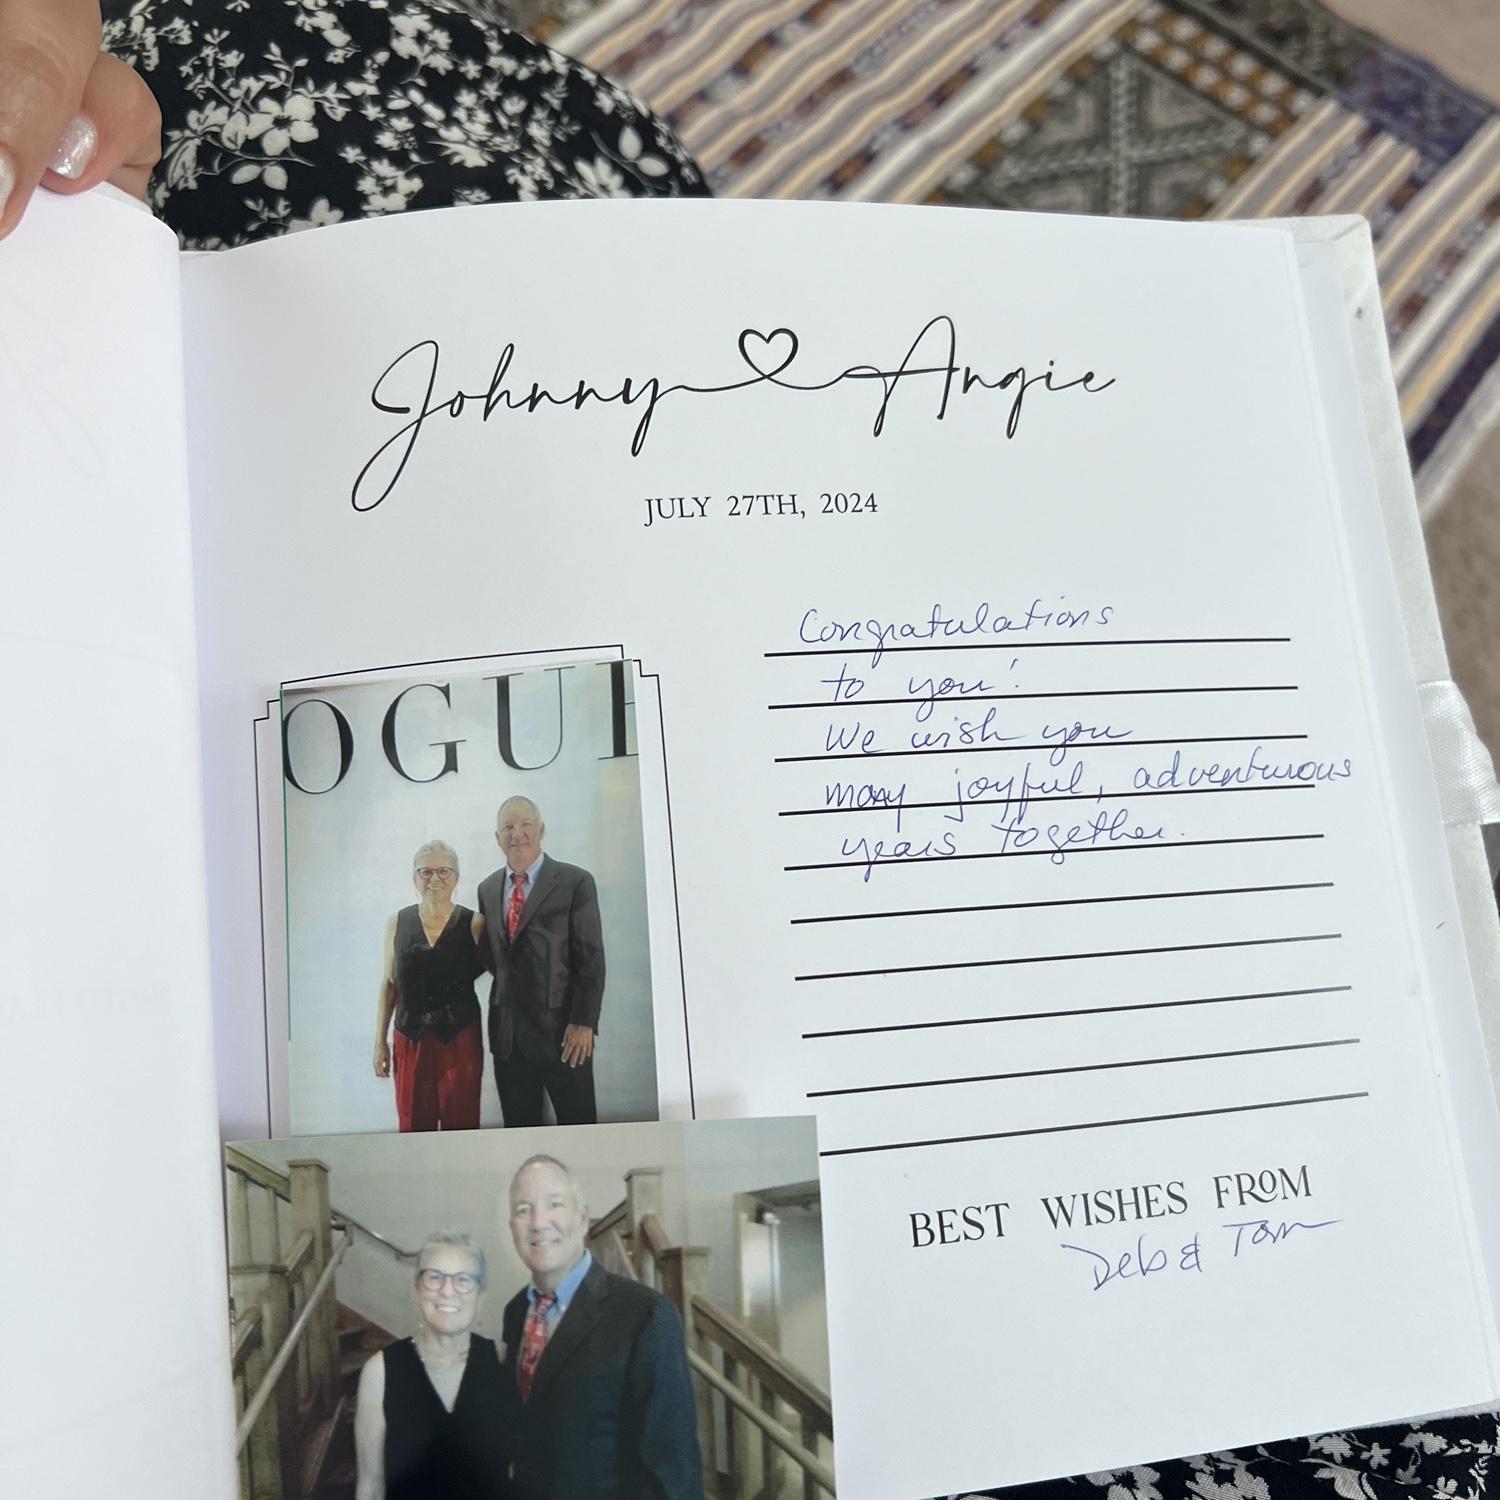 Johnny Angie
JULY 27TH, 2024
Congratulations
to you!
We wish you
many joyful, adventurous
years together.
OGUE
BEST WISHES FROM
Deb & Tom